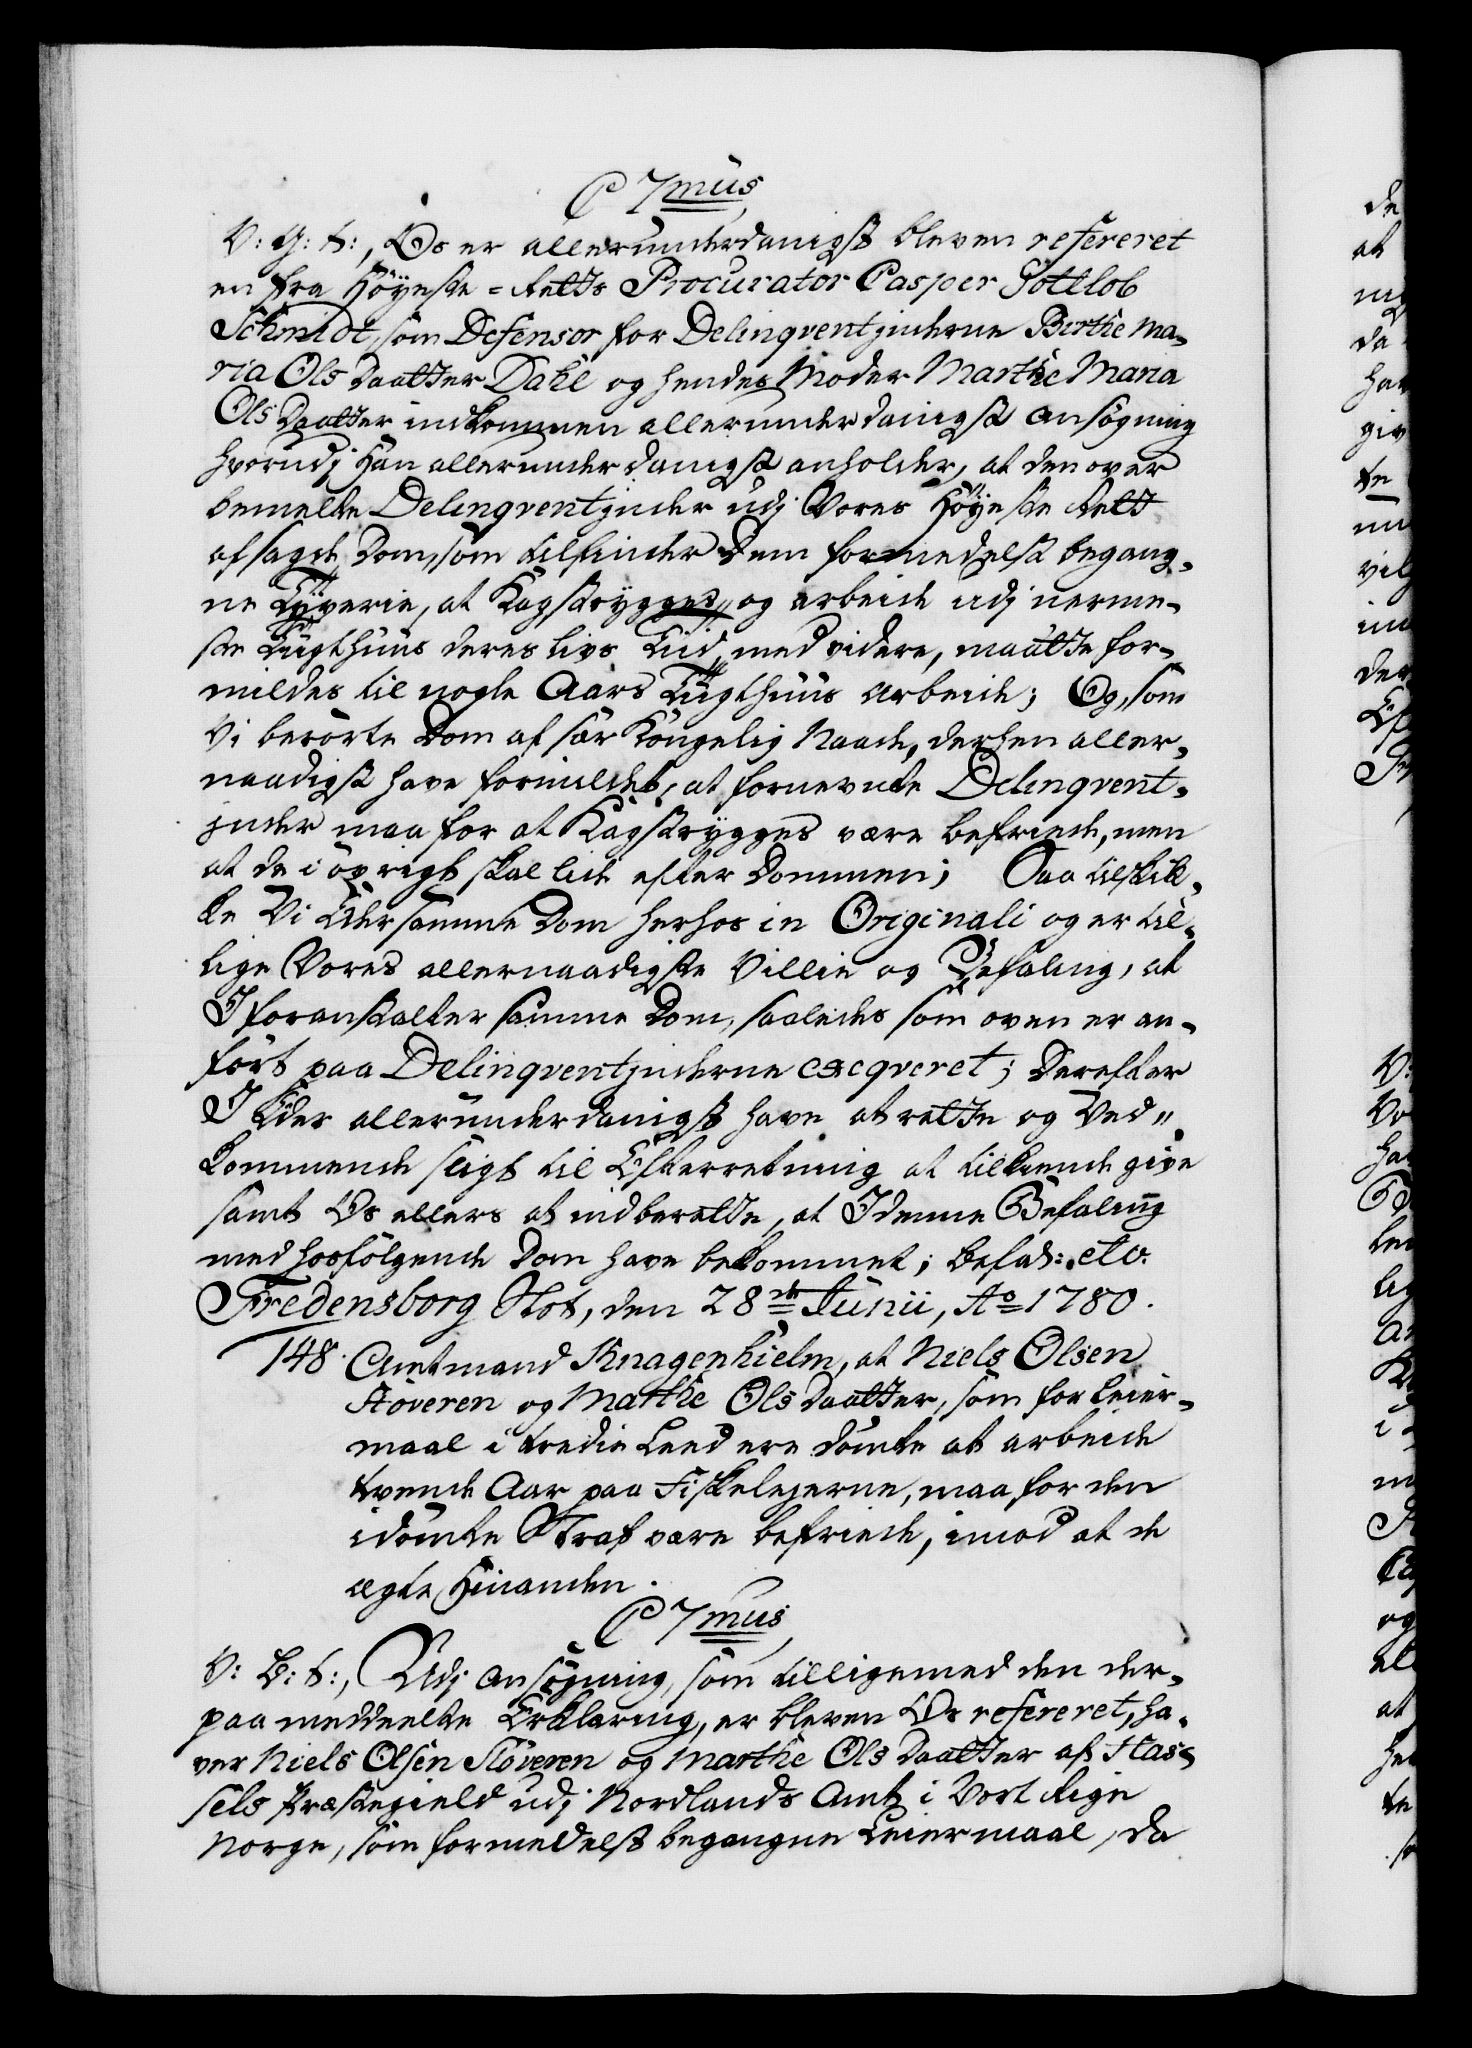 C 7mus
V: G: T:, Os er allerunderdanigst bleven refereret
en fra Höyeste-Retts Procurator Casper Gottlob
Schmidt, som Defensor for Delinqventjnderne Birthe Ma-
ria Ols Daatter Dahl og hendes Moder Marthe Maria
Ols Daatter indkommen allerunderdanigst Ansögning
hvorudj Han allerunderdanigst anholder, at den over
bemelte Delinqventjnder udj Vores Höyeste Rett
afsagde Dom, som tilfinder Dem formedelst begang-
ne Tyverie, at Kagstrygges, og arbeide udj nerme-
ste Tugthuus deres Livs Tiid, med videre, maatte for-
mildes til nogle Aars Tugthuus Arbeide; Og, som
Vi berörte Dom af sær Kongelig Naade, derhen aller-
naadigst have formildet, at fornevnte Delinqvent-
jnder maa for at Kagstrygges være befriede, men
at de i övrigt skal lide efter Dommen; Saa tilskik-
ke Vi Eder samme Dom herhos in Originali og er til-
lige Vores allernaadigste Villie og Befaling, at
I foranstalter samme Dom, saaledes som oven er an-
fört paa Delinqventjnderne exeqveret; Derefter
I Eder allerunderdanigst have at rette og Ved-
kommende sligt til Efterretning at tilkiende give
samt Os ellers at indberette, at I denne Befaling
med hosfölgende Dom have bekommet; Befal: etc.
Fredensborg Slot, den 28de Junii, Ao 1780.
148. Amtmand Knagenhielm, at Niels Olsen
Stöveren og Marthe Ols Daatter, som for Leier-
maal i tredie Leed ere dömte at arbeide
tvende Aar paa Fiskelejerne, maa for den
idömte Straf være befriede, imod at de
ægte Hinanden.
C 7mus
V: B: T:, Udj Ansögning, som tilligemed den der-
paa meddeelte Erklæring, er bleven Os refereret, ha-
ver Niels Olsen Stöveren og Marthe Ols Daatter af Has-
sels Præstegield udj Nordlands Amt i Vort Rige
Norge, som formedelst begangne Leiermaal, da